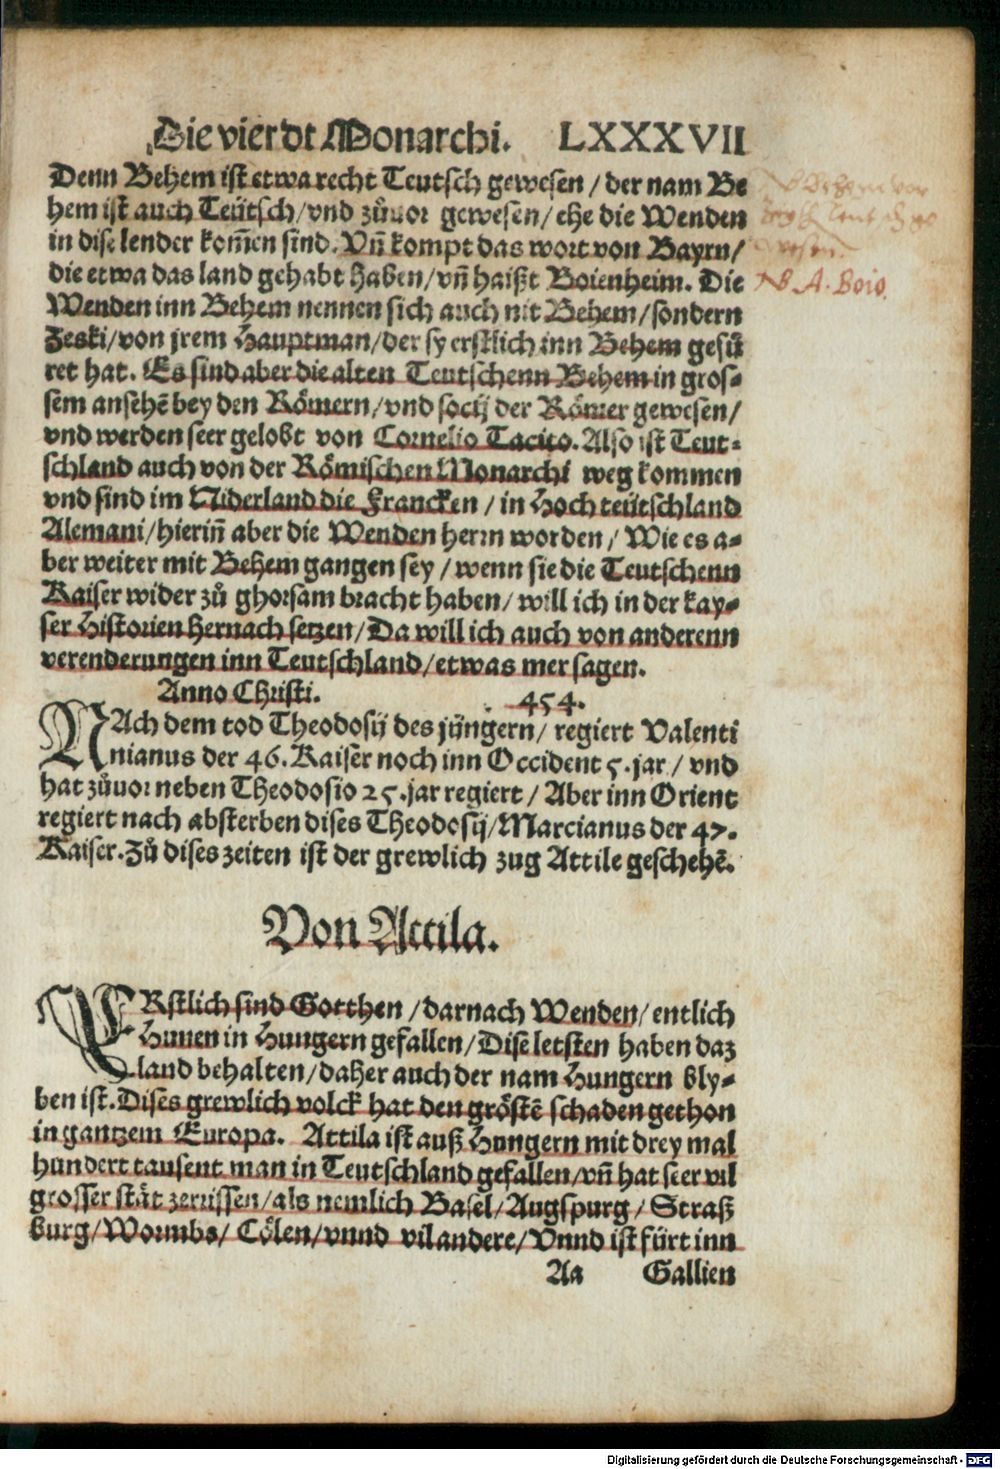 Die vierdt Monarchi. LXXXVII
Denn Behem ist etwa recht Teutsch gewesen / der nam Be
hem ist auch Teütsch / vnd zůuor gewesen / ehe die Wenden
in dise lender kom̃en sind. Vn̄ kompt das wort von Bayrn /
die etwa das land gehabt haben / vn̄ haißt Boienheim. Die
Wenden inn Behem nennen sich auch nit Behem / sondern
Zeski / von jrem Hauptman / der sy erstlich inn Behem gefů
ret hat. Es sind aber die alten Teutschenn Behem in gros⸗
sem ansehē bey den Römern / vnd socij der Römer gewesen /
vnd werden seer gelobt von Cornelio Tacito. Also ist Teut⸗
schland auch von der Römischen Monarchi weg kommen
vnd sind im Niderland die Francken / in Hoch teütschland
Alemani / hierin̄ aber die Wenden herrn worden / Wie es a⸗
ber weiter mit Behem gangen sey / wenn sie die Teutschenn
Kaiser wider zů ghorsam bracht haben / will ich in der kay⸗
ser Historien hernach setzen / Da will ich auch von anderenn
verenderungen inn Teutschland / etwas mer sagen.
Anno Christi. 454.
NAch dem tod Theodosij des jüngern / regiert Valenti
nianus der 46. Kaiser noch inn Occident 5. jar / vnd
hat zůuor neben Theodosio 25. jar regiert / Aber inn Orient
regiert nach absterben dises Theodosij / Marcianus der 47.
Kaiser. Zů dises zeiten ist der grewlich zug Attile geschehē.
Von Attila.
ERstlich sind Gotthen / darnach Wenden / entlich
Hunen in Hungern gefallen / Dise letsten haben daz
land behalten / daher auch der nam Hungern bly⸗
ben ist. Dises grewlich volck hat den gröstē schaden gethon
in gantzem Europa. Attila ist auß Hungern mit drey mal
hundert tausent man in Teutschland gefallen / vn̄ hat seer vil
grosser stät zerrissen / als nemlich Basel / Augspurg / Straß
burg / Wormbs / Cölen / vnnd vil andere / Vnnd ist fürt inn
Aa Gallien
NB A. Boio.
Digitalisierung gefördert durch die Deutsche Forschungsgemeinschaft - DFG